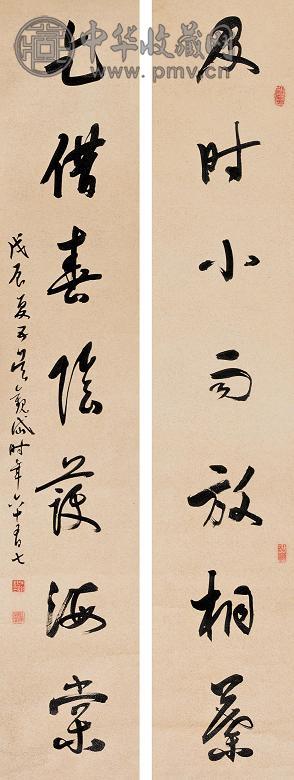 中华收藏网
www.pmv.cn
及时小雨放桐叶
乞借春阴护海棠
戊辰夏五吴观岱时年六十有七